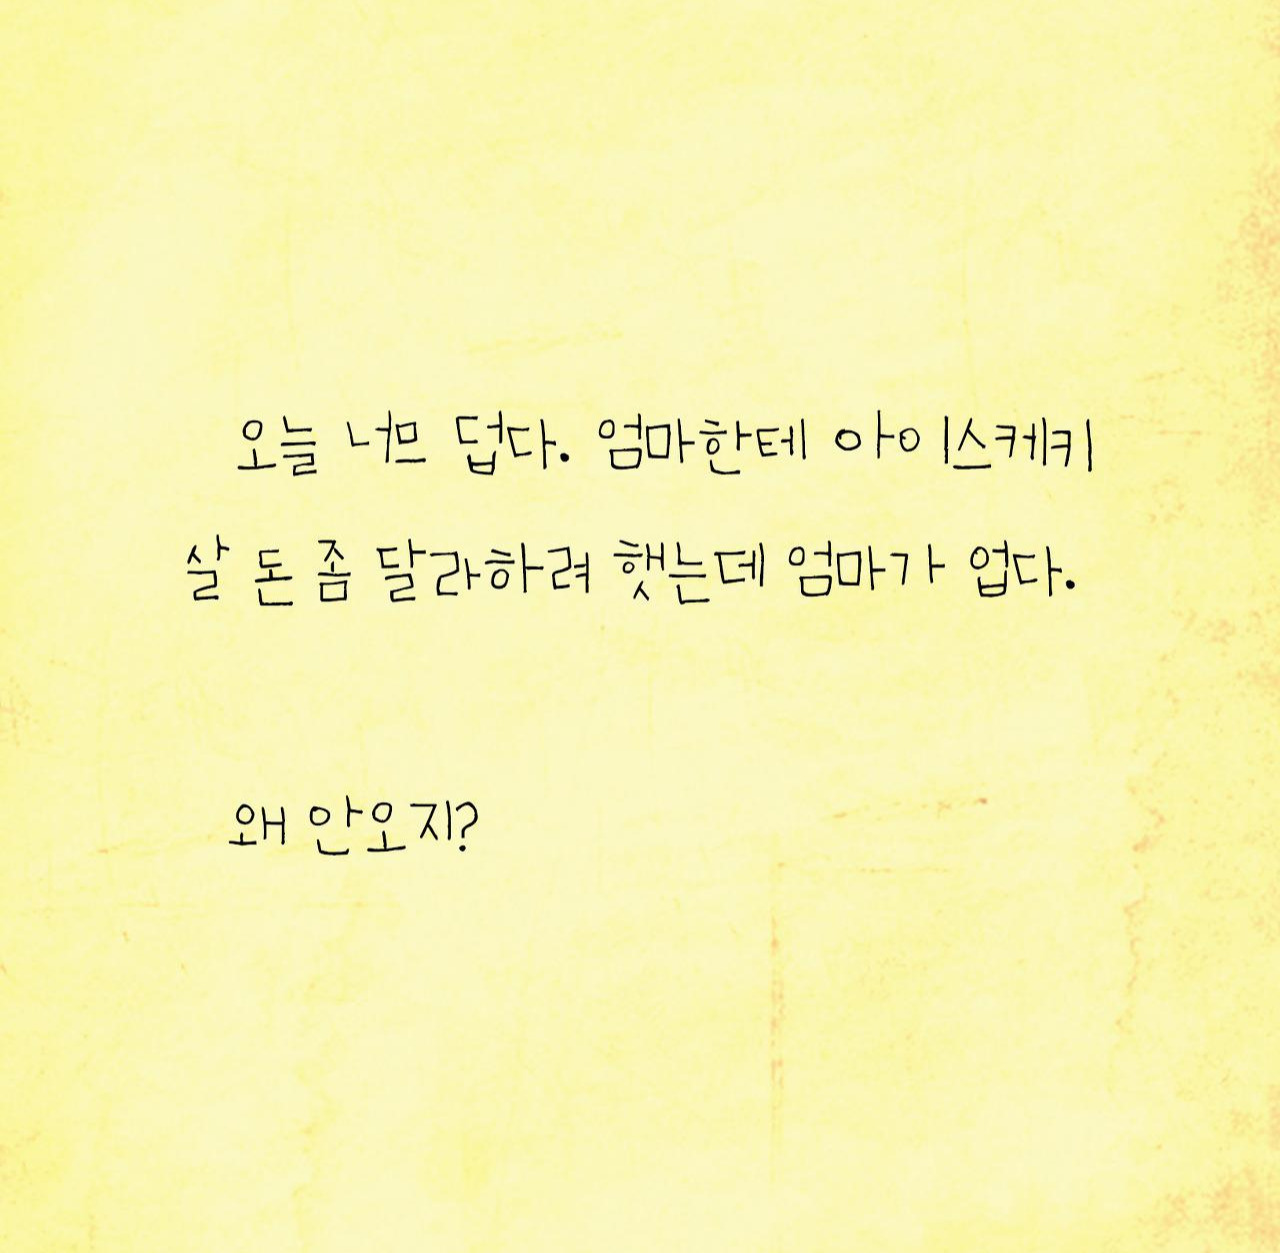 오늘 너므 덥다. 엄마한테 아이스케키
살 돈 좀 달라하려 햇는데 엄마가 업다.
왜 안오지?